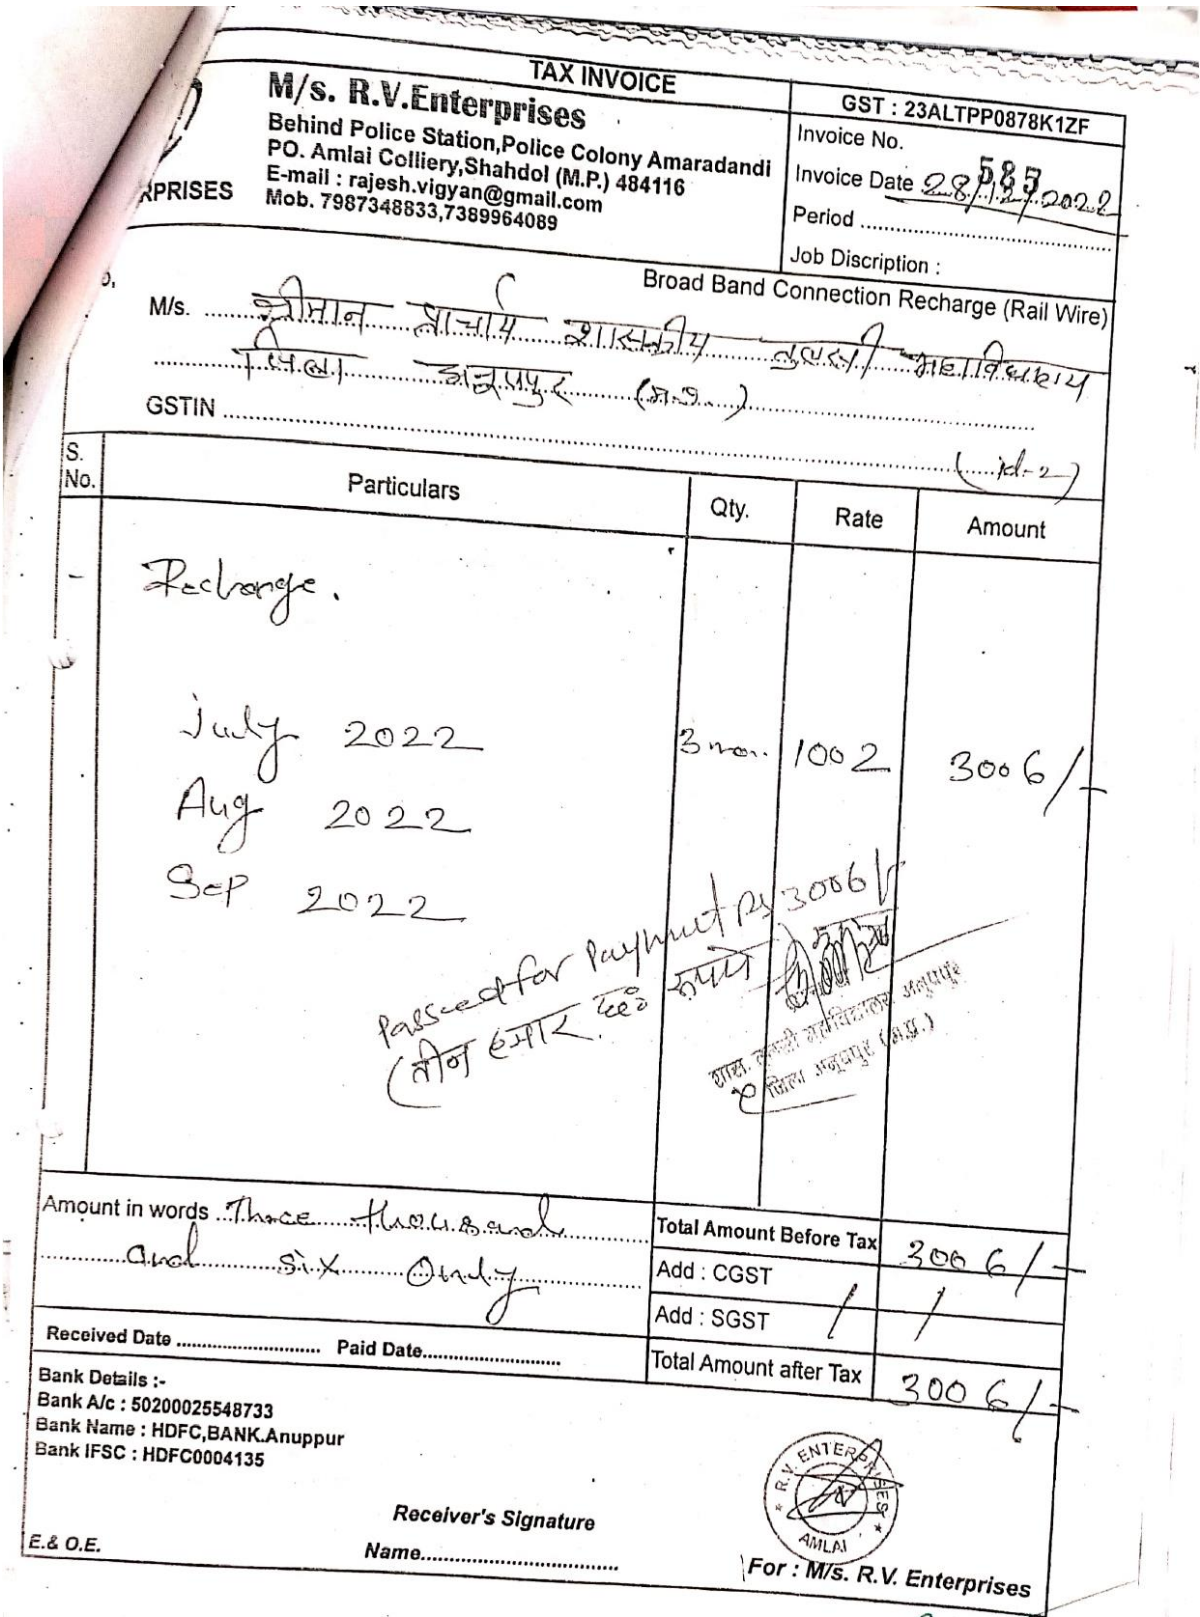 TAX INVOICE
M/s. R.V.Enterprises
Behind Police Station,Police Colony Amaradandi
PO. Amlai Colliery,Shahdol (M.P.) 484116
E-mail : rajesh.vigyan@gmail.com
Mob. 7987348833,7389964089
RPRISES
GST : 23ALTPP0878K1ZF
Invoice No. 583
Invoice Date 28/12/2022
Period
Job Discription :
Broad Band Connection Recharge (Rail Wire)
M/s. श्रीमान प्राचार्य शासकीय तुलसी महाविद्यालय
जिला अनूपपुर (म.प्र.)
GSTIN
(id-2)
S. No. Particulars Qty. Rate Amount
Recharge.
July 2022 3 mon. 1002 3006/-
Aug 2022
Sep 2022
Passed for Payment Rs 3006/-
(तीन हजार छः रूपये
शास. तुलसी महाविद्यालय अनूपपुर
जिला अनूपपुर (म.प्र.)
Amount in words Three thousand
and six Only
Total Amount Before Tax 3006/-
Add : CGST /
Add : SGST /
Total Amount after Tax 3006/-
Received Date Paid Date
Bank Details :-
Bank A/c : 50200025548733
Bank Name : HDFC,BANK.Anuppur
Bank IFSC : HDFC0004135
R.V. ENTERPRISES
AMLAI
Receiver's Signature
Name
E.& O.E.
For : M/s. R.V. Enterprises